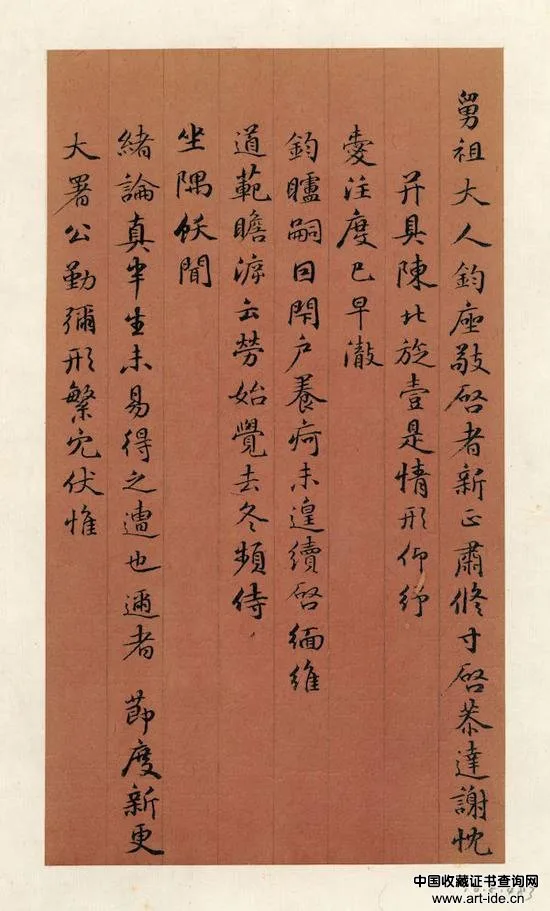 舅祖大人鈞座敬啓者新正肅修寸啓恭達謝忱
并具陳北旋壹是情形仰紓
愛注度已早澈
鈞矑嗣因閉戶養疴未遑續啓緬維
道範瞻溯云勞始覺去冬頻侍
坐隅飫聞
緒論真半生未易得之遭也邇者 節度新更
大署公勤彌形繁冗伏惟
中国收藏证书查询网
www.art-ide.cn